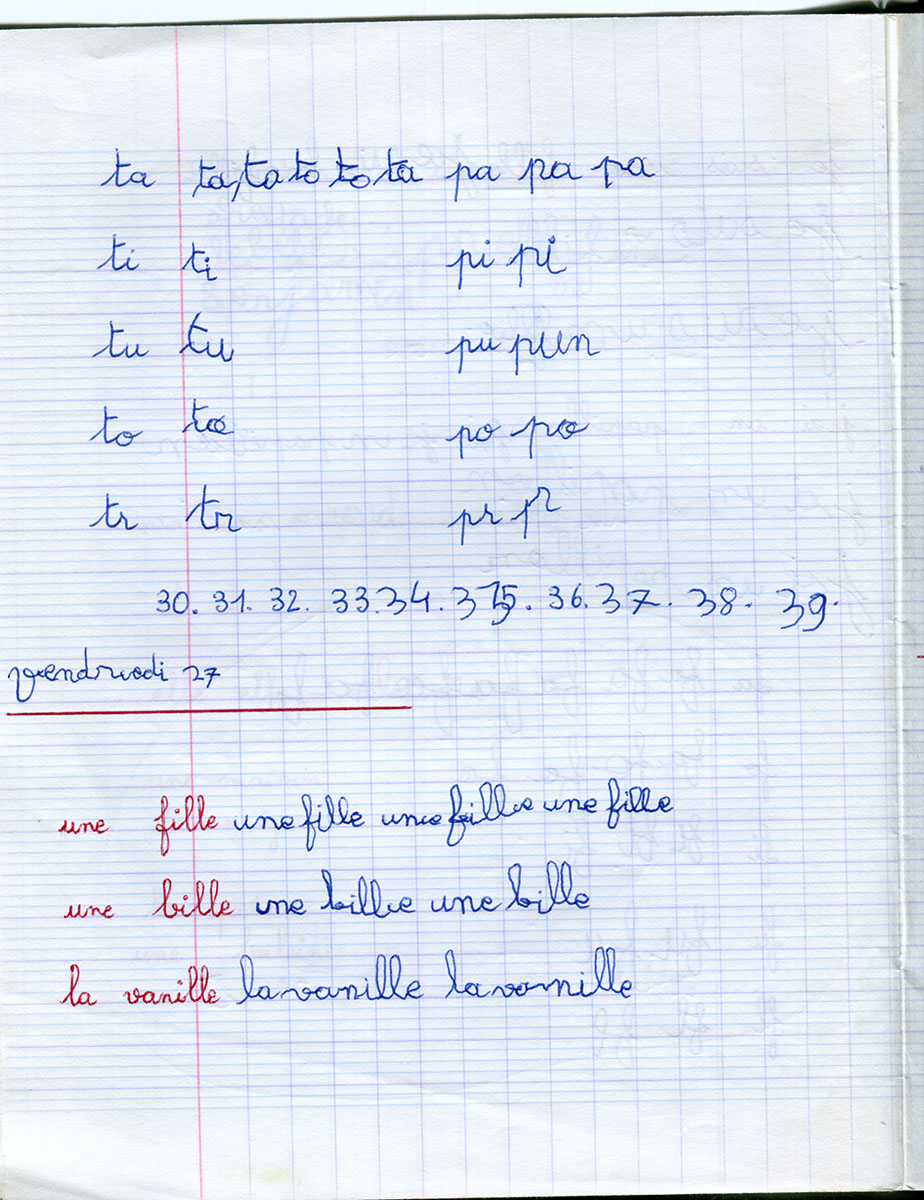 ta ta, ta to to ta pa pa pa
ti ti pi pi
tu tu pu pun
to to po po
tr tr pr pr
30. 31. 32. 33. 34. 35. 36. 37. 38. 39.
vendredi 27
une fille une fille une fille une fille
une bille une bille une bille
la vanille la vanille la vomille